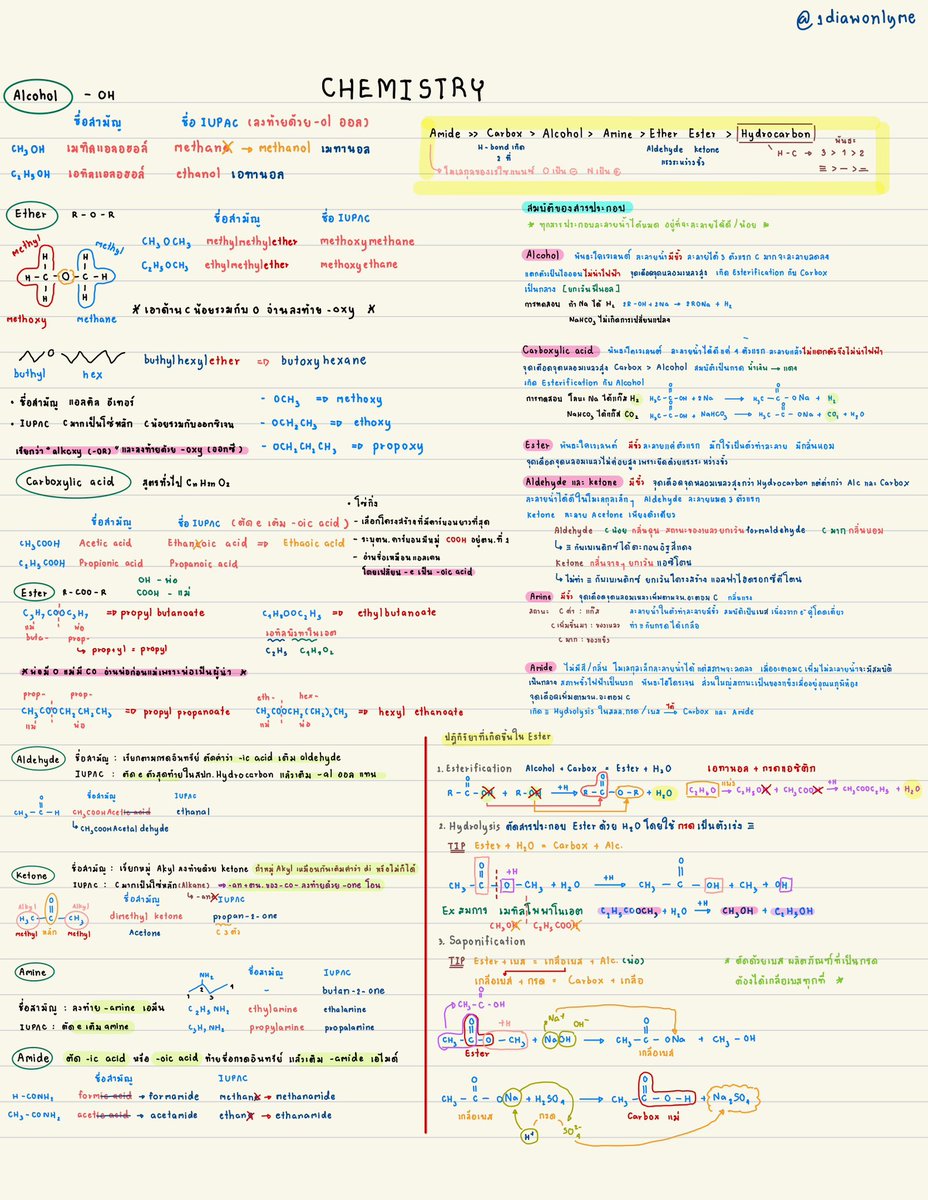 @jdiawonlyme
CHEMISTRY
Alcohol - OH
ชื่อสามัญ ชื่อ IUPAC (ลงท้ายด้วย -ol ออล)
CH3OH เมทิลแอลอฮอล์ methane → methanol เมทานอล
C2H5OH เอทิลแอลอฮอล์ ethanol เอทานอล
Amide >> Carbox > Alcohol > Amine > Ether Ester > Hydrocarbon
H-bond เกิด 2 ที่
Aldehyde ketone
แรงระหว่างขั้ว
พันธะ
H-C → 3 > 1 > 2
≡ > — > =
Ether R-O-R
ชื่อสามัญ ชื่อ IUPAC
methyl methyl
CH3OCH3 methylmethylether methoxymethane
C2H5OCH3 ethylmethylether methoxyethane
H-C-O-C-H
methoxy methane
* เอาด้าน C น้อยรวมกับ O อ่านลงท้าย -oxy *
buthylhexylether ⇒ butoxyhexane
buthyl hex
• ชื่อสามัญ แอลคิล อีเทอร์
• IUPAC C มากเป็นโซ่หลัก C น้อยรวมกับออกซิเจน
เรียกว่า "alkoxy (-OR)" และลงท้ายด้วย -oxy (ออกซี)
- OCH3 ⇒ methoxy
- OCH2CH3 ⇒ ethoxy
- OCH2CH2CH3 ⇒ propoxy
Carboxylic acid สูตรทั่วไป CnHmO2
ชื่อสามัญ ชื่อ IUPAC (ตัด e เติม -oic acid)
CH3COOH Acetic acid Ethanoic acid ⇒ Ethaoic acid
C2H5COOH Propionic acid Propanoic acid
• โซ่กิ่ง
- เลือกโครงสร้างที่มีคาร์บอนยาวที่สุด
- ระบุตน. คาร์บอนมีหมู่ COOH อยู่ตน.ที่ 1
- อ่านชื่อเหมือนแอลเคน
โดยเปลี่ยน -e เป็น -oic acid
Ester R-COO-R
OH - พ่อ
COOH - แม่
C3H7COOC3H7 ⇒ propyl butanoate
แม่ พ่อ
buta- prop-
↳ prop+yl = propyl
C4H9OOC2H5 ⇒ ethylbutanoate
C2H5 C4H9O2
* พ่อมี O แม่มี CO อ่านพ่อก่อนแม่เพราะพ่อเป็นผู้นำ *
prop- prop-
CH3COOCH2CH2CH3 ⇒ propyl propanoate
แม่ พ่อ
eth- hex-
CH3COOCH2(CH2)4CH3 ⇒ hexyl ethanoate
แม่ พ่อ
Aldehyde ชื่อสามัญ : เรียกตามกรดอินทรีย์ ตัดคำว่า -ic acid เติม aldehyde
IUPAC : ตัด e ตัวสุดท้ายในสปก. Hydrocarbon แล้วเติม -al ออล แทน
ชื่อสามัญ IUPAC
CH3-C-H CH3COOH Acetic acid ethanal
↳ CH3COOH Acetaldehyde
Ketone ชื่อสามัญ : เรียกหมู่ Akyl ลงท้ายด้วย ketone ถ้าหมู่ Akyl เหมือนกันเติมคำว่า di หรือไม่ก็ได้
IUPAC : C มากเป็นโซ่หลัก(Alkane) ⇒ -an+ตน.ของ-co-ลงท้ายด้วย-one โอน
ชื่อสามัญ IUPAC
Alkyl Alkyl
H3C-C-CH3 dimethyl ketone propan-2-one
methyl หลัก methyl Acetone C 3 ตัว
Amine NH2 ชื่อสามัญ IUPAC
- butan-2-one
ชื่อสามัญ : ลงท้าย -amine เอมีน C2H5NH2 ethylamine ethalamine
IUPAC : ตัด e เติม amine C3H7NH2 propylamine propalamine
Amide ตัด -ic acid หรือ -oic acid ท้ายชื่อกรดอินทรีย์ แล้วเติม -amide เอไมด์
ชื่อสามัญ IUPAC
H-CONH2 formic acid → formamide methane → methanamide
CH3-CONH2 acetic acid → acetamide ethane → ethanamide
สมบัติของสารประกอบ
* ทุกสารประกอบละลายน้ำได้หมด อยู่ที่จะละลายได้ดี/น้อย *
Alcohol พันธะโคเวเลนต์ ละลายน้ำมีขั้ว ละลายได้ 3 ตัวแรก C มากจะละลายลดลง
แตกตัวเป็นไอออน ไม่นำไฟฟ้า จุดเดือดจุดหลอมเหลวสูง เกิด Esterification กับ Carbox
เป็นกลาง [ยกเว้นฟีนอล]
การทดสอบ ทำ Na ได้ H2 2R-OH+2Na → 2RONa + H2
NaHCO3 ไม่เกิดการเปลี่ยนแปลง
Carboxylic acid พันธะโคเวเลนต์ ละลายน้ำได้ดีแค่ 4 ตัวแรก ละลายแล้วไม่แตกตัวจึงไม่นำไฟฟ้า
จุดเดือดจุดหลอมเหลวสูง Carbox > Alcohol สมบัติเป็นกรด น้ำเงิน → แดง
เกิด Esterification กับ Alcohol
การทดสอบ โลหะ Na ได้แก๊ส H2 H3C-C-OH + 2Na → H3C-C-ONa + H2
NaHCO3 ได้แก๊ส CO2 H3C-C-OH + NaHCO3 → H3C-C-ONa + CO2 + H2O
Ester พันธะโคเวเลนต์ มีขั้วละลายแค่ตัวแรก มักใช้เป็นตัวทำละลาย มีกลิ่นหอม
จุดเดือดจุดหลอมเหลวไม่ค่อยสูงเพราะยึดด้วยแรงระหว่างขั้ว
Aldehyde และ ketone มีขั้ว จุดเดือดจุดหลอมเหลวสูงกว่า Hydrocarbon แต่ต่ำกว่า Alc และ Carbox
ละลายน้ำได้ดีในโมเลกุลเล็กๆ Aldehyde ละลายหมด 3 ตัวแรก
Ketone ละลาย Acetone เพียงตัวเดียว
Aldehyde C น้อย กลิ่นฉุน สถานะของเหลวยกเว้น formaldehyde C มาก กลิ่นหอม
↳ ≡ กับเบเนดิกซ์ได้ตะกอนอิฐสีแดง
Ketone กลิ่นจางๆ ยกเว้น แอซีโตน
↳ ไม่ทำ ≡ กับเบเนดิกซ์ ยกเว้นโครงสร้าง แอลฟาไฮดรอกซีคีโตน
Amine มีขั้ว จุดเดือดจุดหลอมเหลวเพิ่มตามจน.อะตอม C กลิ่นแรง
สถานะ C ต่ำ : แก๊ส ละลายน้ำในตัวทำละลายมีขั้ว สมบัติเป็นเบส เนื่องจาก e- คู่โดดเดี่ยว
C เพิ่มขึ้นมา : ของเหลว ทำ ≡ กับกรดได้เกลือ
C มาก : ของแข็ง
Amide ไม่มีสี/กลิ่น โมเลกุลเล็กละลายน้ำได้ แต่สภาพจะลดลง เมื่ออะตอม C เพิ่ม ไม่ละลายน้ำจะมีสมบัติ
เป็นกลาง สภาพขั้วไฟฟ้าเป็นบวก พันธะไฮโดรเจน ส่วนใหญ่สถานะเป็นของแข็งเมื่ออยู่อุณหภูมิห้อง
จุดเดือดเพิ่มตามจน.อะตอม C
เกิด ≡ Hydrolysis ในสลล.กรด/เบส ได้→ Carbox และ Amide
ปฏิกิริยาที่เกิดขึ้นใน Ester
1. Esterification Alcohol + Carbox = Ester + H2O เอทานอล + กรดแอซิติก
R-C-OH + R-OH +H→ R-C-O-R + H2O
C2H6O → C2H5OH + CH3COOH +H→ CH3COOC2H5 + H2O
2. Hydrolysis ตัดสารประกอบ Ester ด้วย H2O โดยใช้ กรด เป็นตัวเร่ง ≡
TIP Ester + H2O = Carbox + Alc.
CH3-C-O-CH3 + H2O +H→ CH3-C-OH + CH3+OH
Ex สมการ เมทิลโพพาโนเอต C2H5COOCH3 + H2O +H→ CH3OH + C2H5OH
CH3OH C2H5COOH
3. Saponification
TIP Ester + เบส = เกลือเบส + Alc. (พ่อ)
เกลือเบส + กรด = Carbox + เกลือ
* ตัดด้วยเบส ผลิตภัณฑ์ที่เป็นกรด
ต้องได้เกลือเบสทุกที่ *
CH3-C-OH
+H Na+ OH-
CH3-C-O-CH3 + NaOH → CH3-C-ONa + CH3-OH
Ester เกลือเบส
CH3-C-ONa + H2SO4 → CH3-C-O-H + Na2SO4
เกลือเบส กรด Carbox แม่
H+ SO4 2-